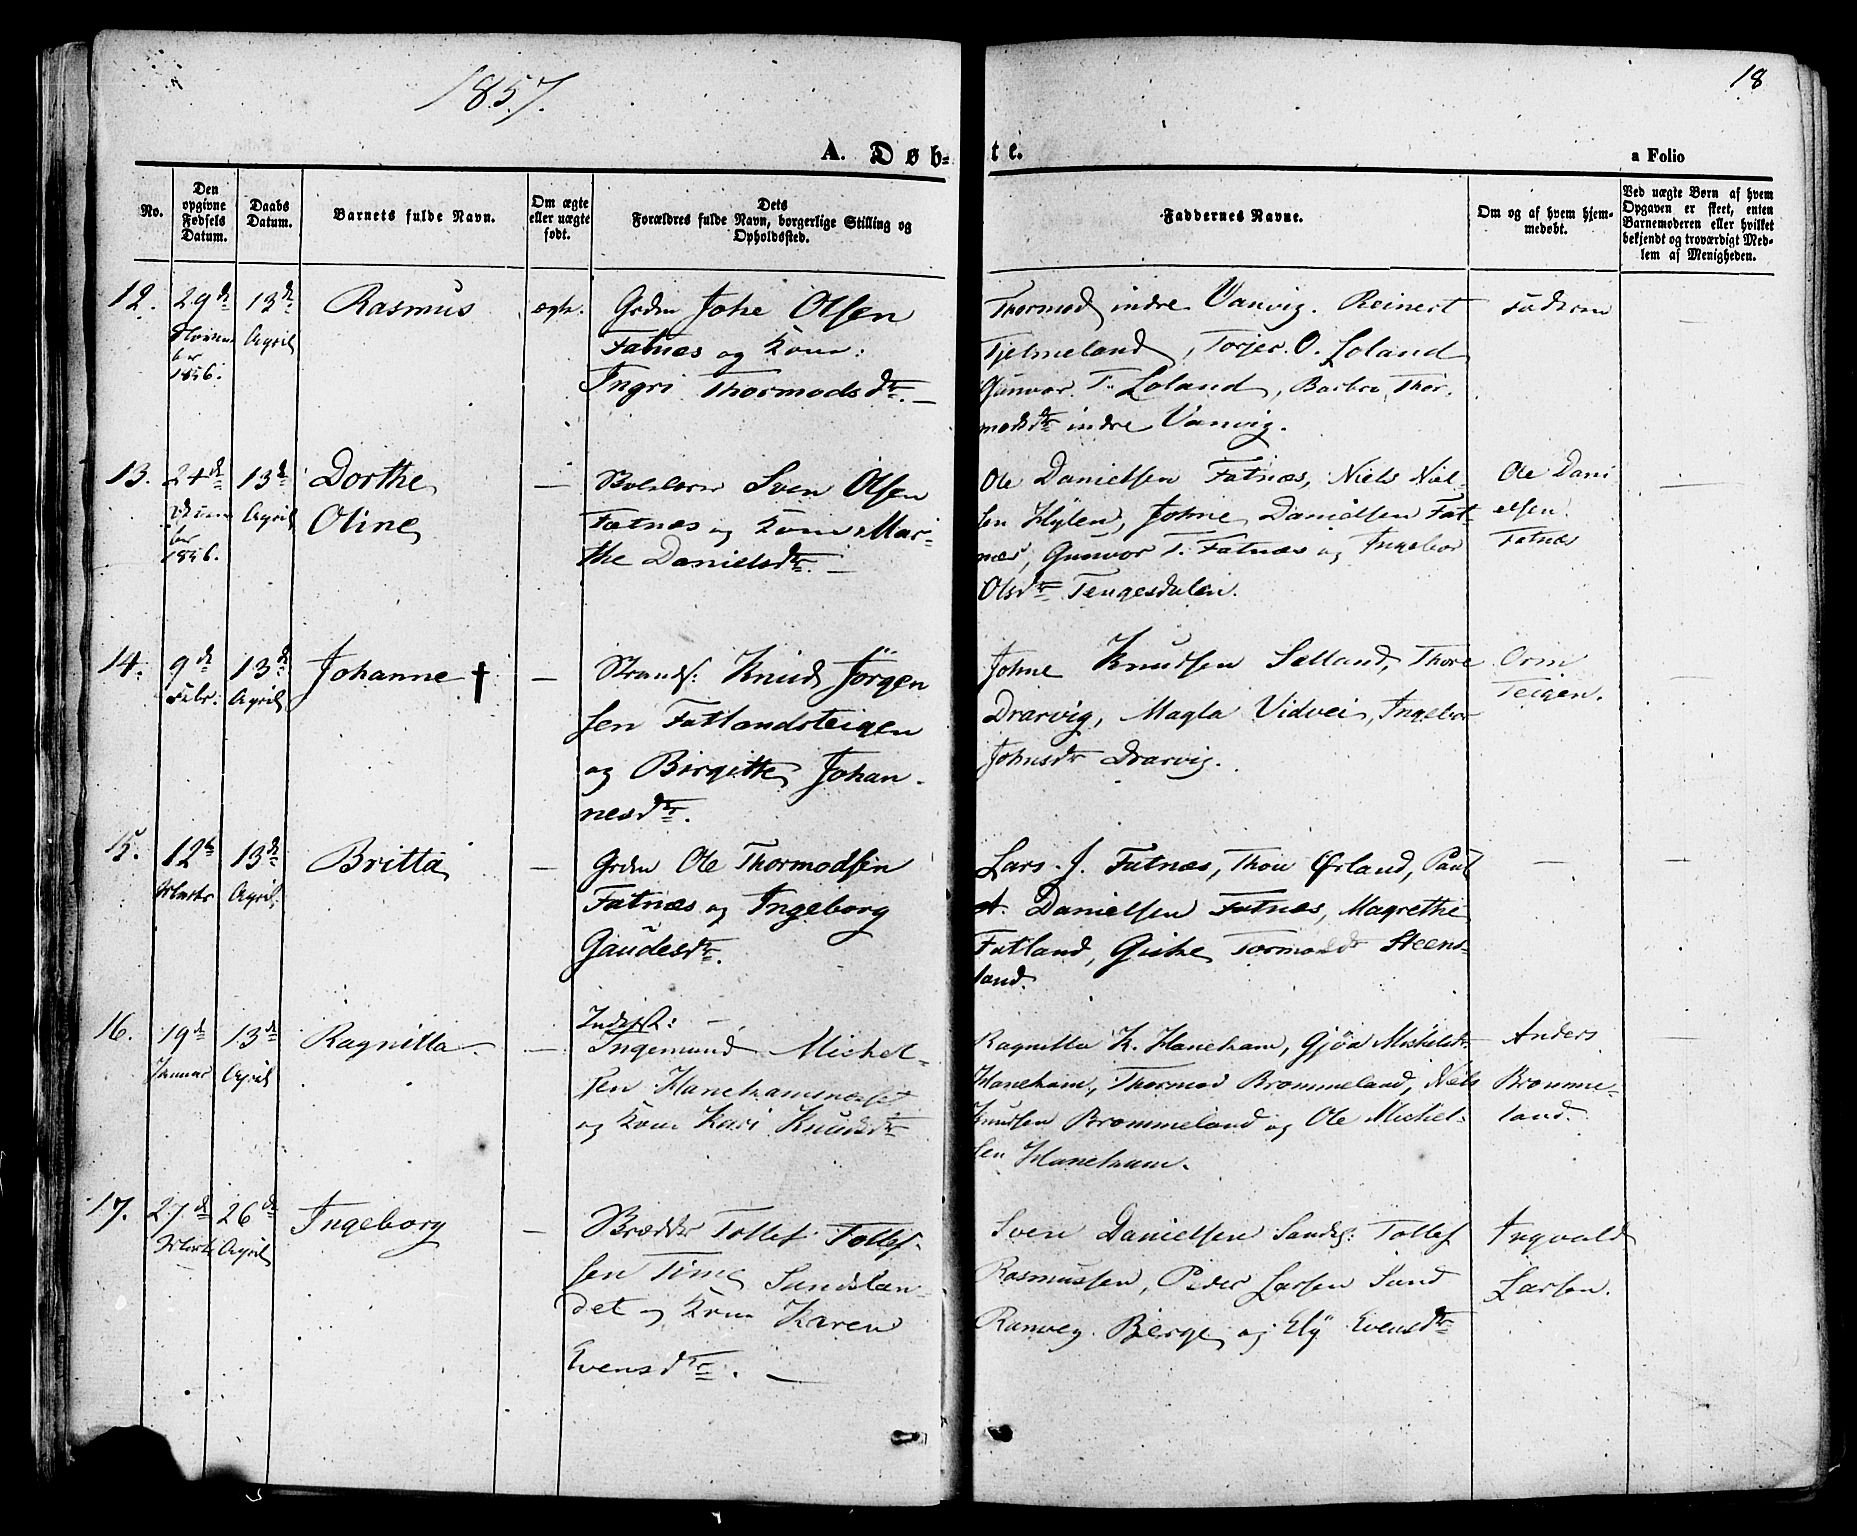 1857.
18
A. Døb-
te.
a Folio
No.
Den opgivne Fødsels Datum.
Daabs Datum.
Barnets fulde Navn.
Om ægte eller uægte født.
Dets Forældres fulde Navn, borgerlige Stilling og Opholdssted.
Faddernes Navne.
Om og af hvem hjemmedøbt.
Ved uægte Børn af hvem Opgaven er skeet, enten Barnemoderen eller hvilket bekjendt og troværdigt Medlem af Menigheden.
12.
29de
Novem
ber
1856.
13de
April
Rasmus
ægte.
Grdm Johe Olsen
Fatnes og Kone:
Ingri Thormodsdtr. —
Thormod indre Vanvig. Reinert
Tjelmeland, Torjer. O. Loland
Gunvor. T. Loland, Barbra Thor-
modsdtr indre Vanvig.
Faderen
—
13.
24de
Decem
ber
1856.
13de
April
Dorthe
Oline
—
Sven Olsen
Fatnes og Kone Mar-
the Danielsdtr. —
Ole Danielsen Fatnes, Niels Niel-
sen Hylen, Johne Danielsen Fat-
nes, Gunvor T. Fatnes og Ingebor
Olsdtr Tengesdalen.
Ole Dani
elsen
Fatnæs
—
14.
9de
Febr.
13de
April
Johanne †
—
Strands: Knud Jörgen
sen Fatlandsteigen
og Birgitte Johan-
nesdtr.
Johne Knudsen Selland, Thore
Drarvig, Magla Vidvei, Ingebor
Johnsdtr Drarvig.
Orm
Teigen.
—
15.
12te
Marts
13de
April
Britta
—
Grdm Ole Thormodsen
Fatnæs og Ingeborg
Gaudesdtr.
Lars. J. Fatnæs, Thou Ørland, Paul
A. Danielsen Fatnæs, Magrethe
Fatland, Tormodsdtr Steens-
land.
—
—
16.
19de
Januar
13de
April
Ragnilla
—
Inderst: —
Ingemund Michel-
sen Hanehamsneset
og Kone Kari Knudsdtr
Ragnilla K. Haneham, Gjöa Michelsdtr
Haneham, Thormod Brommeland, Niels
Knudsen Brommeland og Ole Michel-
sen Haneham.
Anders
Bromme-
land
—
17.
27de
Marts
26de
April
Ingeborg
—
Tollef Tollef-
sen Time Sandslan-
det og Kone Karen
Evensdtr. —
Sven Danielsen Sands: Tollef
Rasmussen, Peder Larsen Sand
Ranveg Berge og Ely Evensdtr
Ingvald
Larsen.